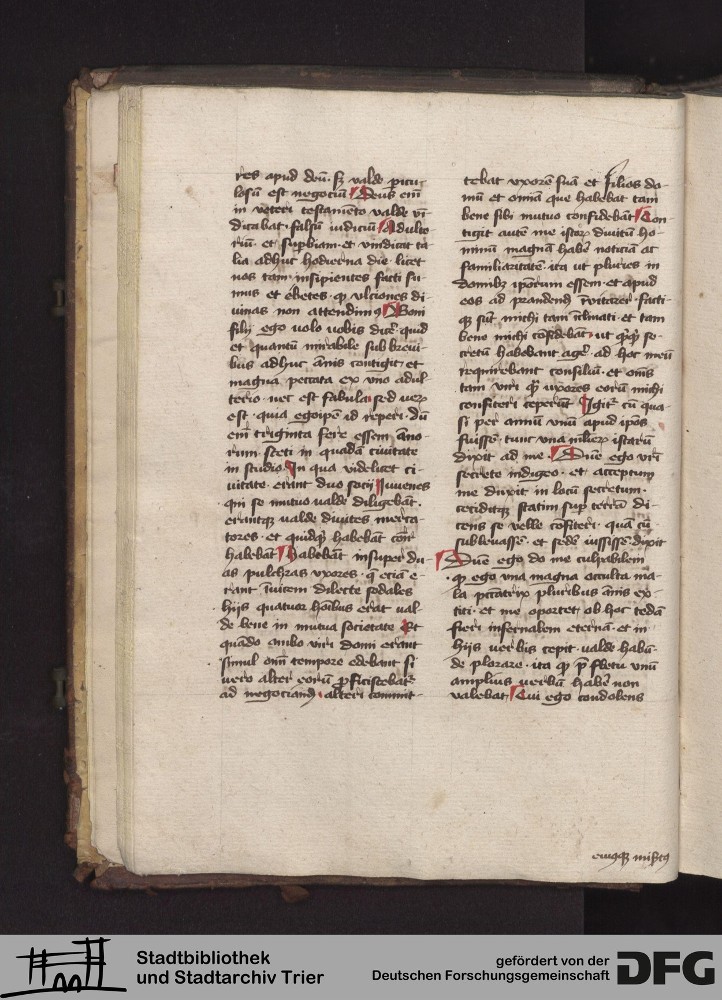 res apud deū· sz valde picu-
losū est negociū Deus em̄
in veteri testamēto valde vī-
dicabat· falsū iudiciū Adulte-
riū· et supbiam· et vindicat ta
lia adhuc hodierna die· licet
nos tam· insipientes facti su-
mus et ebetes· qꝫ vlciones di
vinas non attendimꝰ Boni
filij ego volo vobis dicē quid
et quantū mirabile sub brevi-
bus adhuc ānis contigit· et
magna peccata ex vno adul
terio· nec est fabula· sed
est· quia egoipē id reperi· Dū
em̄ triginta fere essem āno-
rum· steti in quadā civitate
in studio· In qua videlicet ci-
vitate· erant duo socij iuvenes
qui se mutuo valde diligebāt·
erantqꝫ valde divites merca-
tores· et quidqꝫ habebāt cōē
habebāt habebāt insuper du-
as pulchras vxores· q̄ eciā e-
rant īuicem dilecte sodales
hijs quatuor hoībus erat val-
de bene in mutua societate Et
quādo ambo viri domi erant
simul om̄i tempore edebant si
vero alter eorū pficiscebatᷣ
ad negociandꝫ· alteri commit-
tebat vxorē suā et filios do-
mū et omīa que habebat tam
bene sibi mutuo confidebāt Con
tigit autē me istoꝝ divitū ho-
minū magnā habē noticiā ac
familiaritatē· ita ut pluries in
domibꝫ ipōrum essem· et apud
eos ad prandendꝫ īvitarer· facti-
qꝫ sūt michi tam īclinati· et tam
bene michi cōfidebāt· ut se-
cretū habebant agē· ad hoc meū
requirebant consiliū· et om̄s
tam viri qꝫ vxores eorū michi
confiteri ceperūt Igitᷣ cū qua-
si per annū vnū apud ipōs
fuissē· tunc vna mlieꝝ istarū
dixit ad me· Dn̄e ego vr̄i
secrete indigeo· et acceptum
me duxit in locū secretum·
ceciditqꝫ statim sup terrā di-
cens se velle cōfiteri· quā cū
subleuassē· et sedē iussissē· dixit
Dn̄e ego do me culpabilem
qꝫ ego vna magna occulta ma-
la pccatrix pluribus ānis ex-
titi· et me oportet ob hoc tedā
fieri infernalem eternā· et in
hijs verbis cepit· valde habū-
de plorare· ita qꝫ p̄ fletu vnū
amplius verbū habē non
valebat Cui ego condolens
eiusqꝫ
Stadtbibliothek
und Stadtarchiv Trier
gefördert von der
Deutschen Forschungsgemeinschaft
DFG